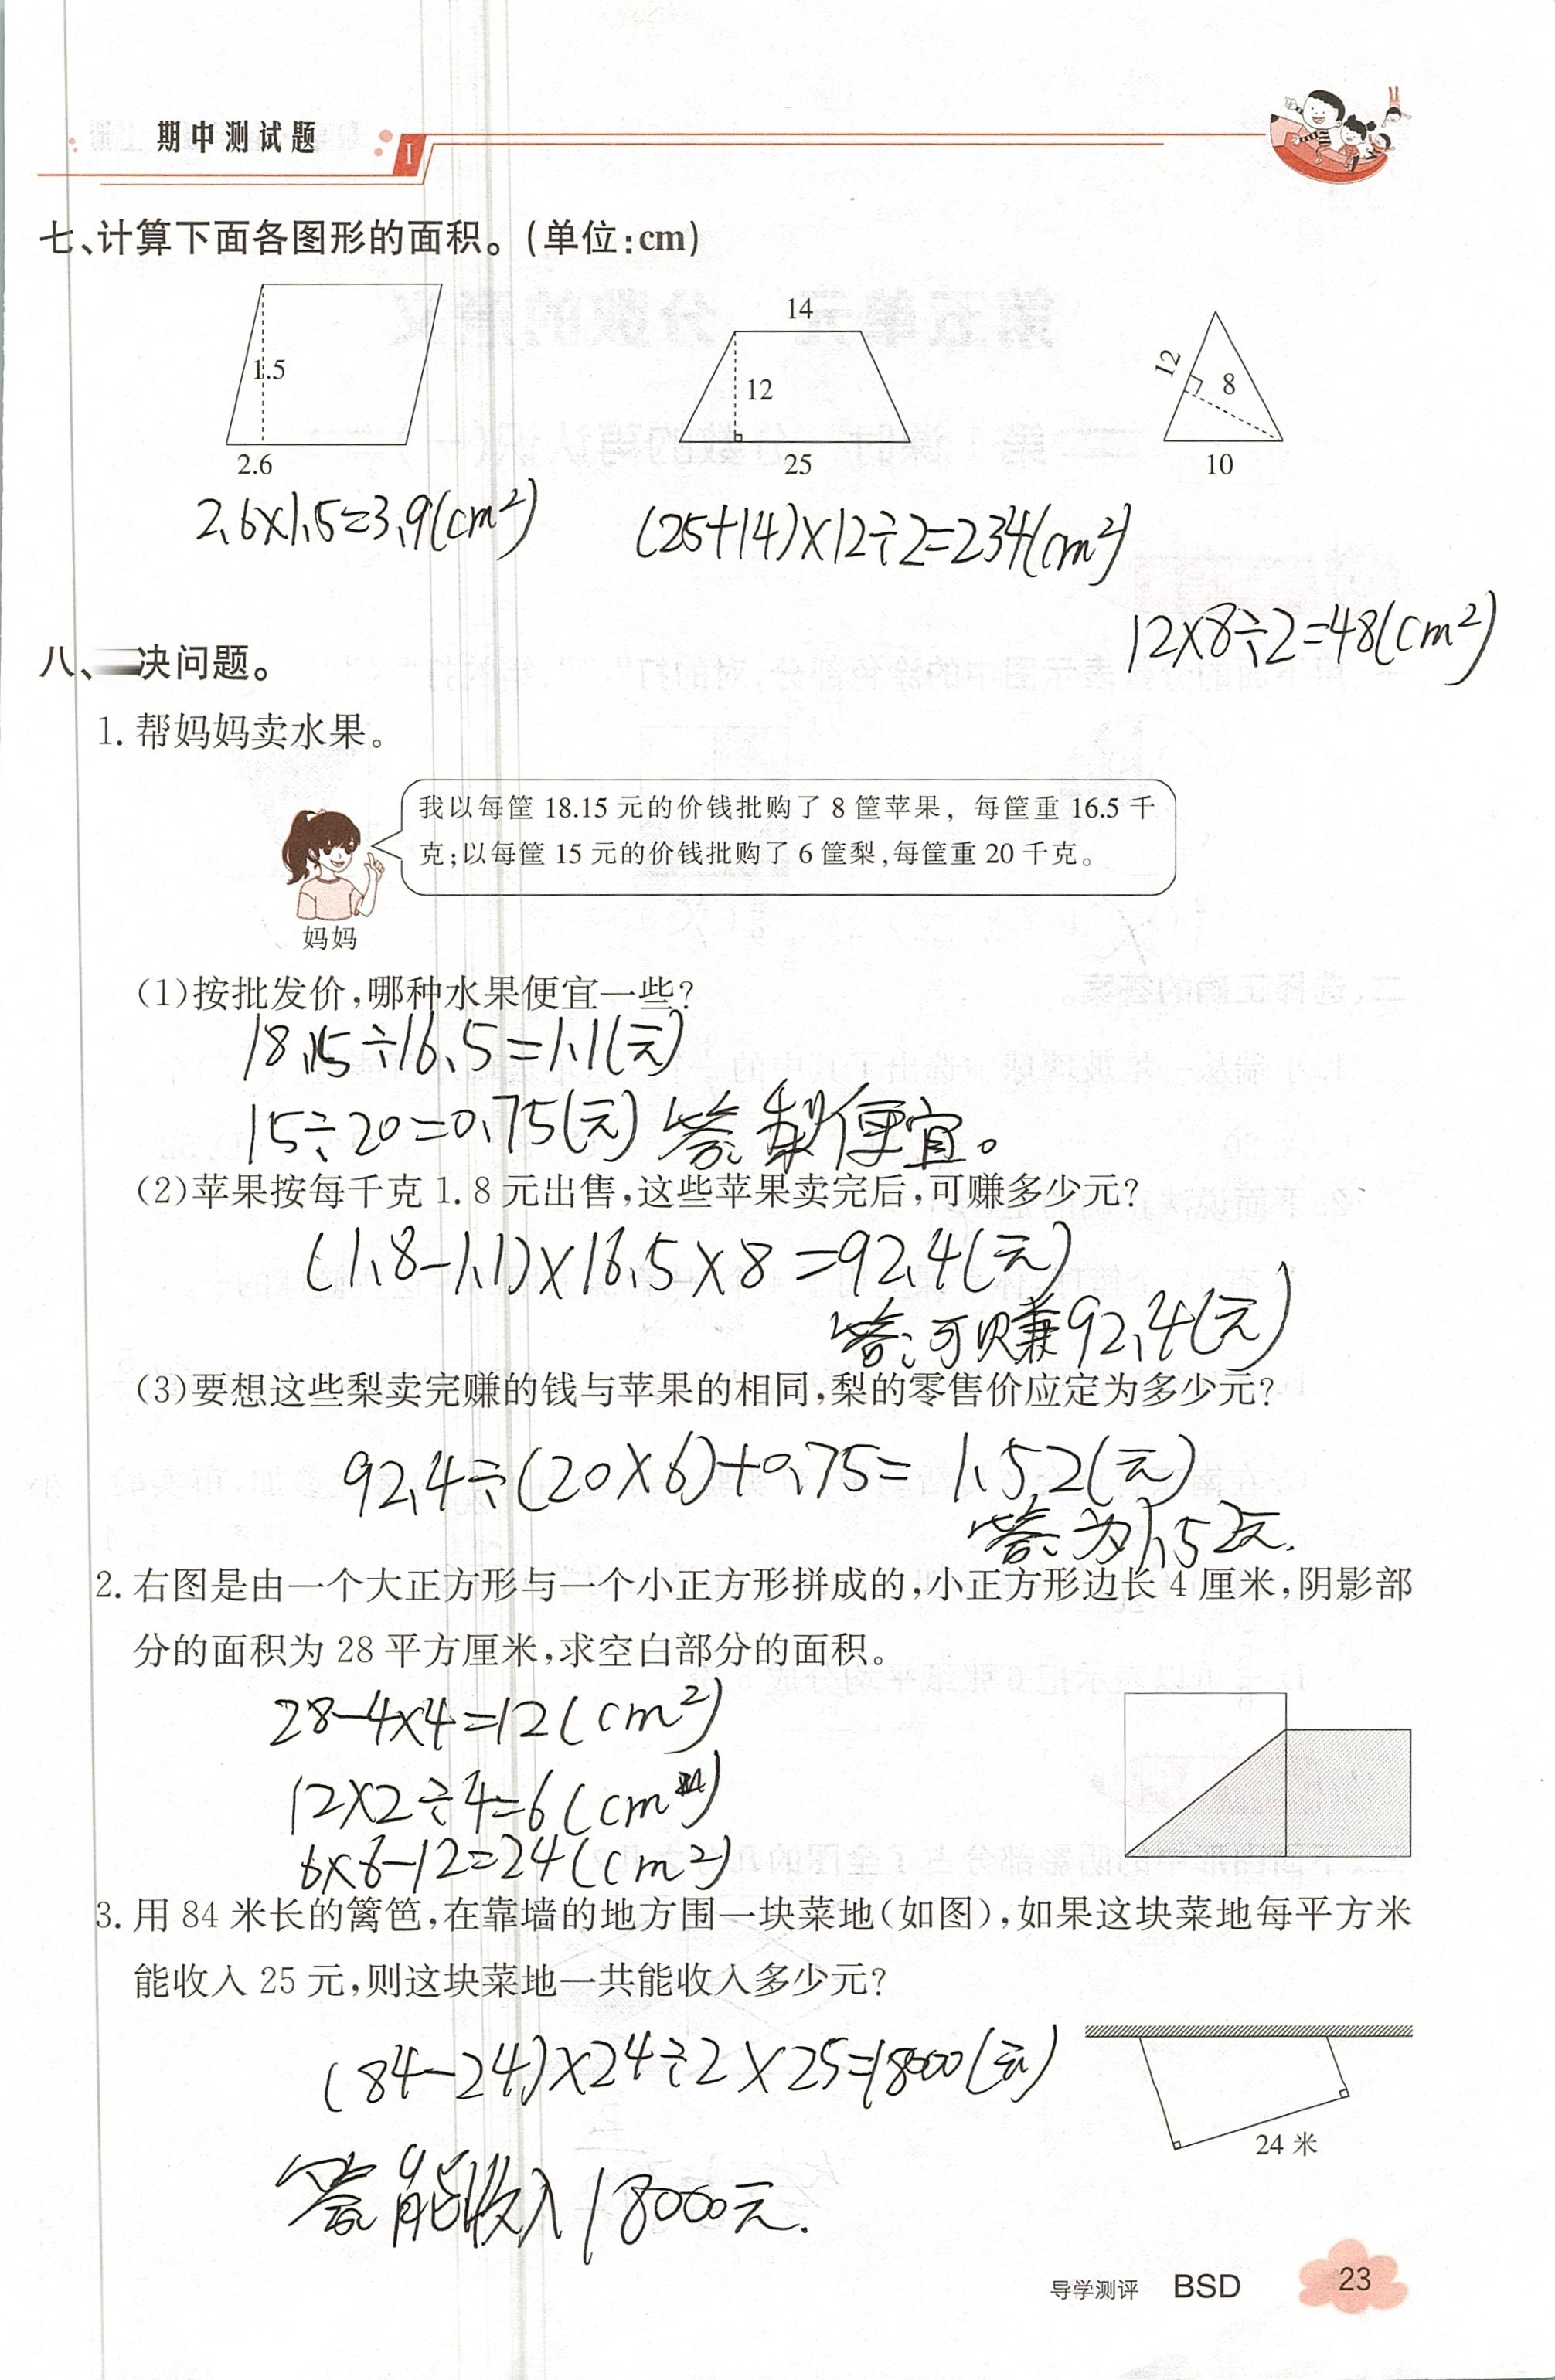 期中测试题 I
七、计算下面各图形的面积。(单位:cm)
1.5
2.6
14
12
25
12
8
10
2.6×1.5=3.9(cm²)
(25+14)×12÷2=234(cm²)
12×8÷2=48(cm²)
八、决问题。
1. 帮妈妈卖水果。
我以每筐 18.15 元的价钱批购了 8 筐苹果，每筐重 16.5 千
克;以每筐 15 元的价钱批购了 6 筐梨,每筐重 20 千克。
妈妈
(1)按批发价,哪种水果便宜一些?
18.15÷16.5=1.1(元)
15÷20=0.75(元) 答:梨便宜。
(2)苹果按每千克 1.8 元出售,这些苹果卖完后,可赚多少元?
(1.8-1.1)×16.5×8=92.4(元)
答:可赚92.4(元)
(3)要想这些梨卖完赚的钱与苹果的相同,梨的零售价应定为多少元?
92.4÷(20×6)+0.75= 1.52(元)
答:为1.52元.
2. 右图是由一个大正方形与一个小正方形拼成的,小正方形边长 4 厘米,阴影部
分的面积为 28 平方厘米,求空白部分的面积。
28-4×4=12(cm²)
12×2÷4=6(cm)
6×6-12=24(cm²)
3. 用 84 米长的篱笆,在靠墙的地方围一块菜地(如图),如果这块菜地每平方米
能收入 25 元,则这块菜地一共能收入多少元?
(84-24)×24÷2×25=18000(元)
24 米
答:能收入18000元.
导学测评 BSD 23